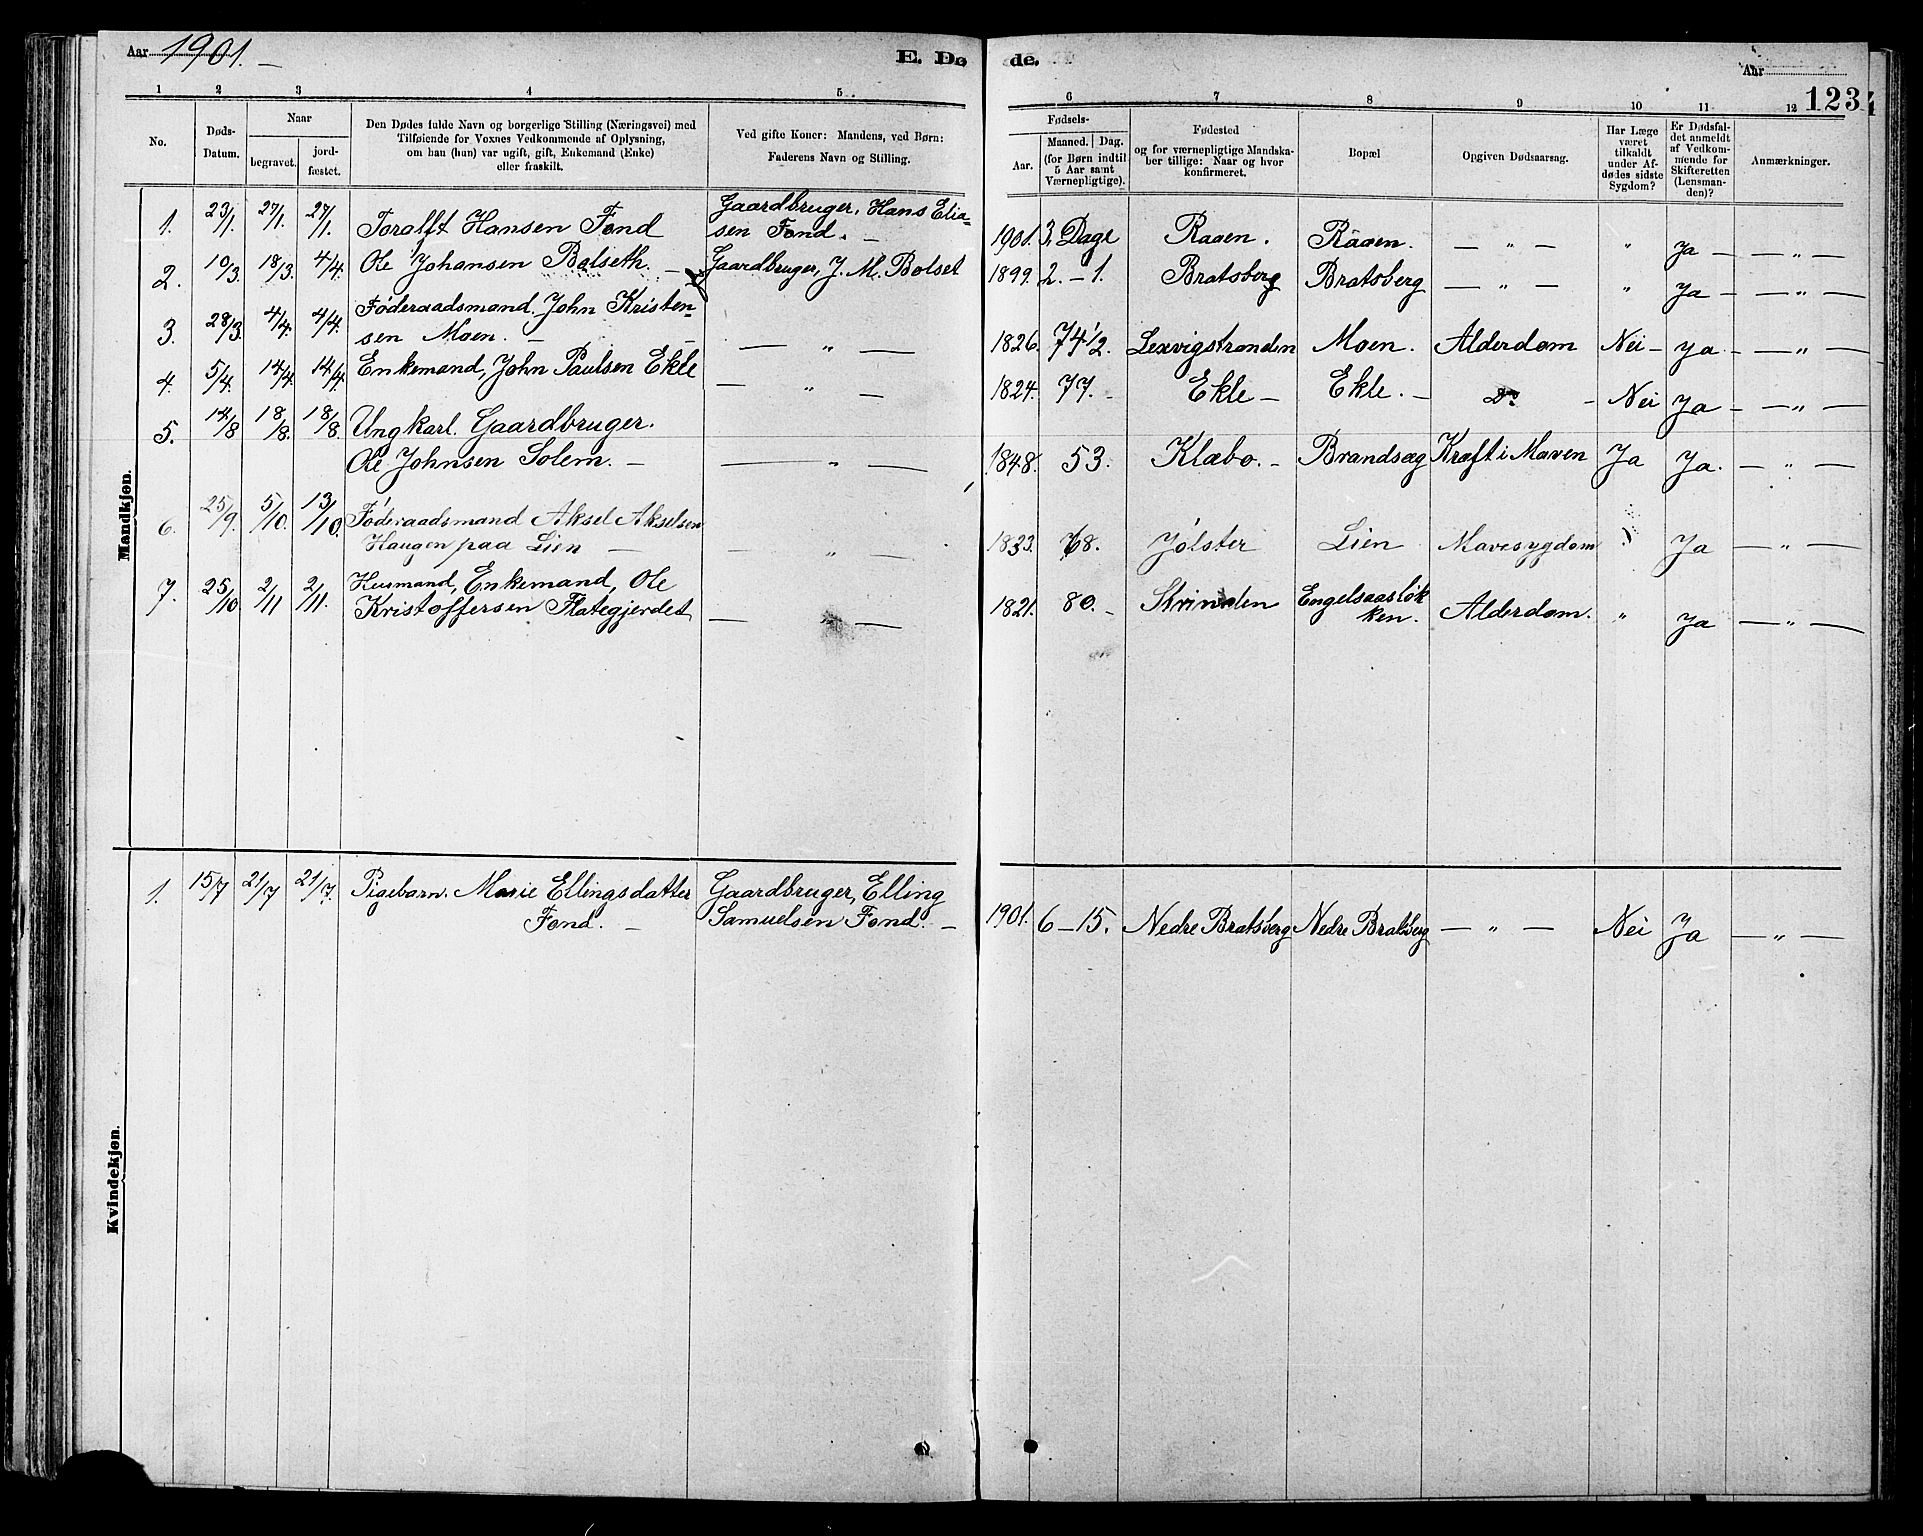 Aar 1901. –
E. Dø de.
Aar
123
1 2 3 4 5. 6 7 8 9 10 11 12
No.
Døds-
Datum.
Naar
begravet.
jord-
fæstet.
Den Dødes fulde Navn og borgerlige Stilling (Næringsvei) med
Tilføiende for Voxnes Vedkommende af Oplysning,
om han (hun) var ugift, gift, Enkemand (Enke)
eller fraskilt.
Ved gifte Koner: Mandens, ved Børn:
Faderens Navn og Stilling.
Fødsels-
Aar.
Maaned. Dag.
(for Børn indtil
5 Aar samt
Værnepligtige).
Fødested
og for værnepligtige Mandska-
ber tillige: Naar og hvor
konfirmeret.
Bopæl
Opgiven Dødsaarsag.
Har Læge
været
tilkaldt
under Af-
dødes sidste
Sygdom?
Er Dødsfal-
det anmeldt
af Vedkom-
mende for
Skifteretten
(Lensman-
den)?
Anmærkninger.
Mandkjøn.
1. 23/1. 27/1. 27/1. Toralft Hansen Fond Gaardbruger, Hans Elia-
sen Fond. – 1901. 3 Dage Raaen. Raaen. – „ – „ Ja – – „ –
2. 10/3. 18/3. 4/4. Ole Johansen Bolseth. – Gaardbruger, J. M. Bolset 1899. 2. – 1. Bratsberg Bratsberg – „ – „ Ja – – „ –
3. 28/3. 4/4. 4/4. Føderaadsmand, John Kristen-
sen Moen. – – „ – 1826. 74 1/2. Lexvigstranden Moen. Alderdom Nei – Ja. – – „ –
4. 5/4. 14/4. 14/4. Enkemand, John Paulsen Ekle – „ – 1824. 77. – Ekle – Ekle. – Do – Nei Ja – – „ –
5. 14/8 18/8. 18/8. Ungkarl. Gaardbruger.
Ole Johnsen Solem. – – „ – 1848. 53. Klæbo. – Brandsæg Kræft i Maven Ja Ja. – „ –
6. 25/9. 5/10. 13/10. Føderaadsmand Aksel Akselsen
Haugen paa Lien – – „ – 1823. 78. Jølster Lien Mavesygdom Ja – „ –
7. 25/10. 2/11 2/11. Husmand, Enkemand, Ole
Kristoffersen Flategjerdet, – „ – 1821. 80. – Strinden Engelsaasløk
ken. Alderdom. „ Ja – „ –
Kvindekjøn.
1. 15/7 21/7 21/7. Pigebarn. Marie Ellingsdatter
Fond. – Gaardbruger, Elling
Samuelsen Fond. – 1901. 6 – 15. Nedre Bratsberg Nedre Bratsberg – „ – Nei Ja – „ –